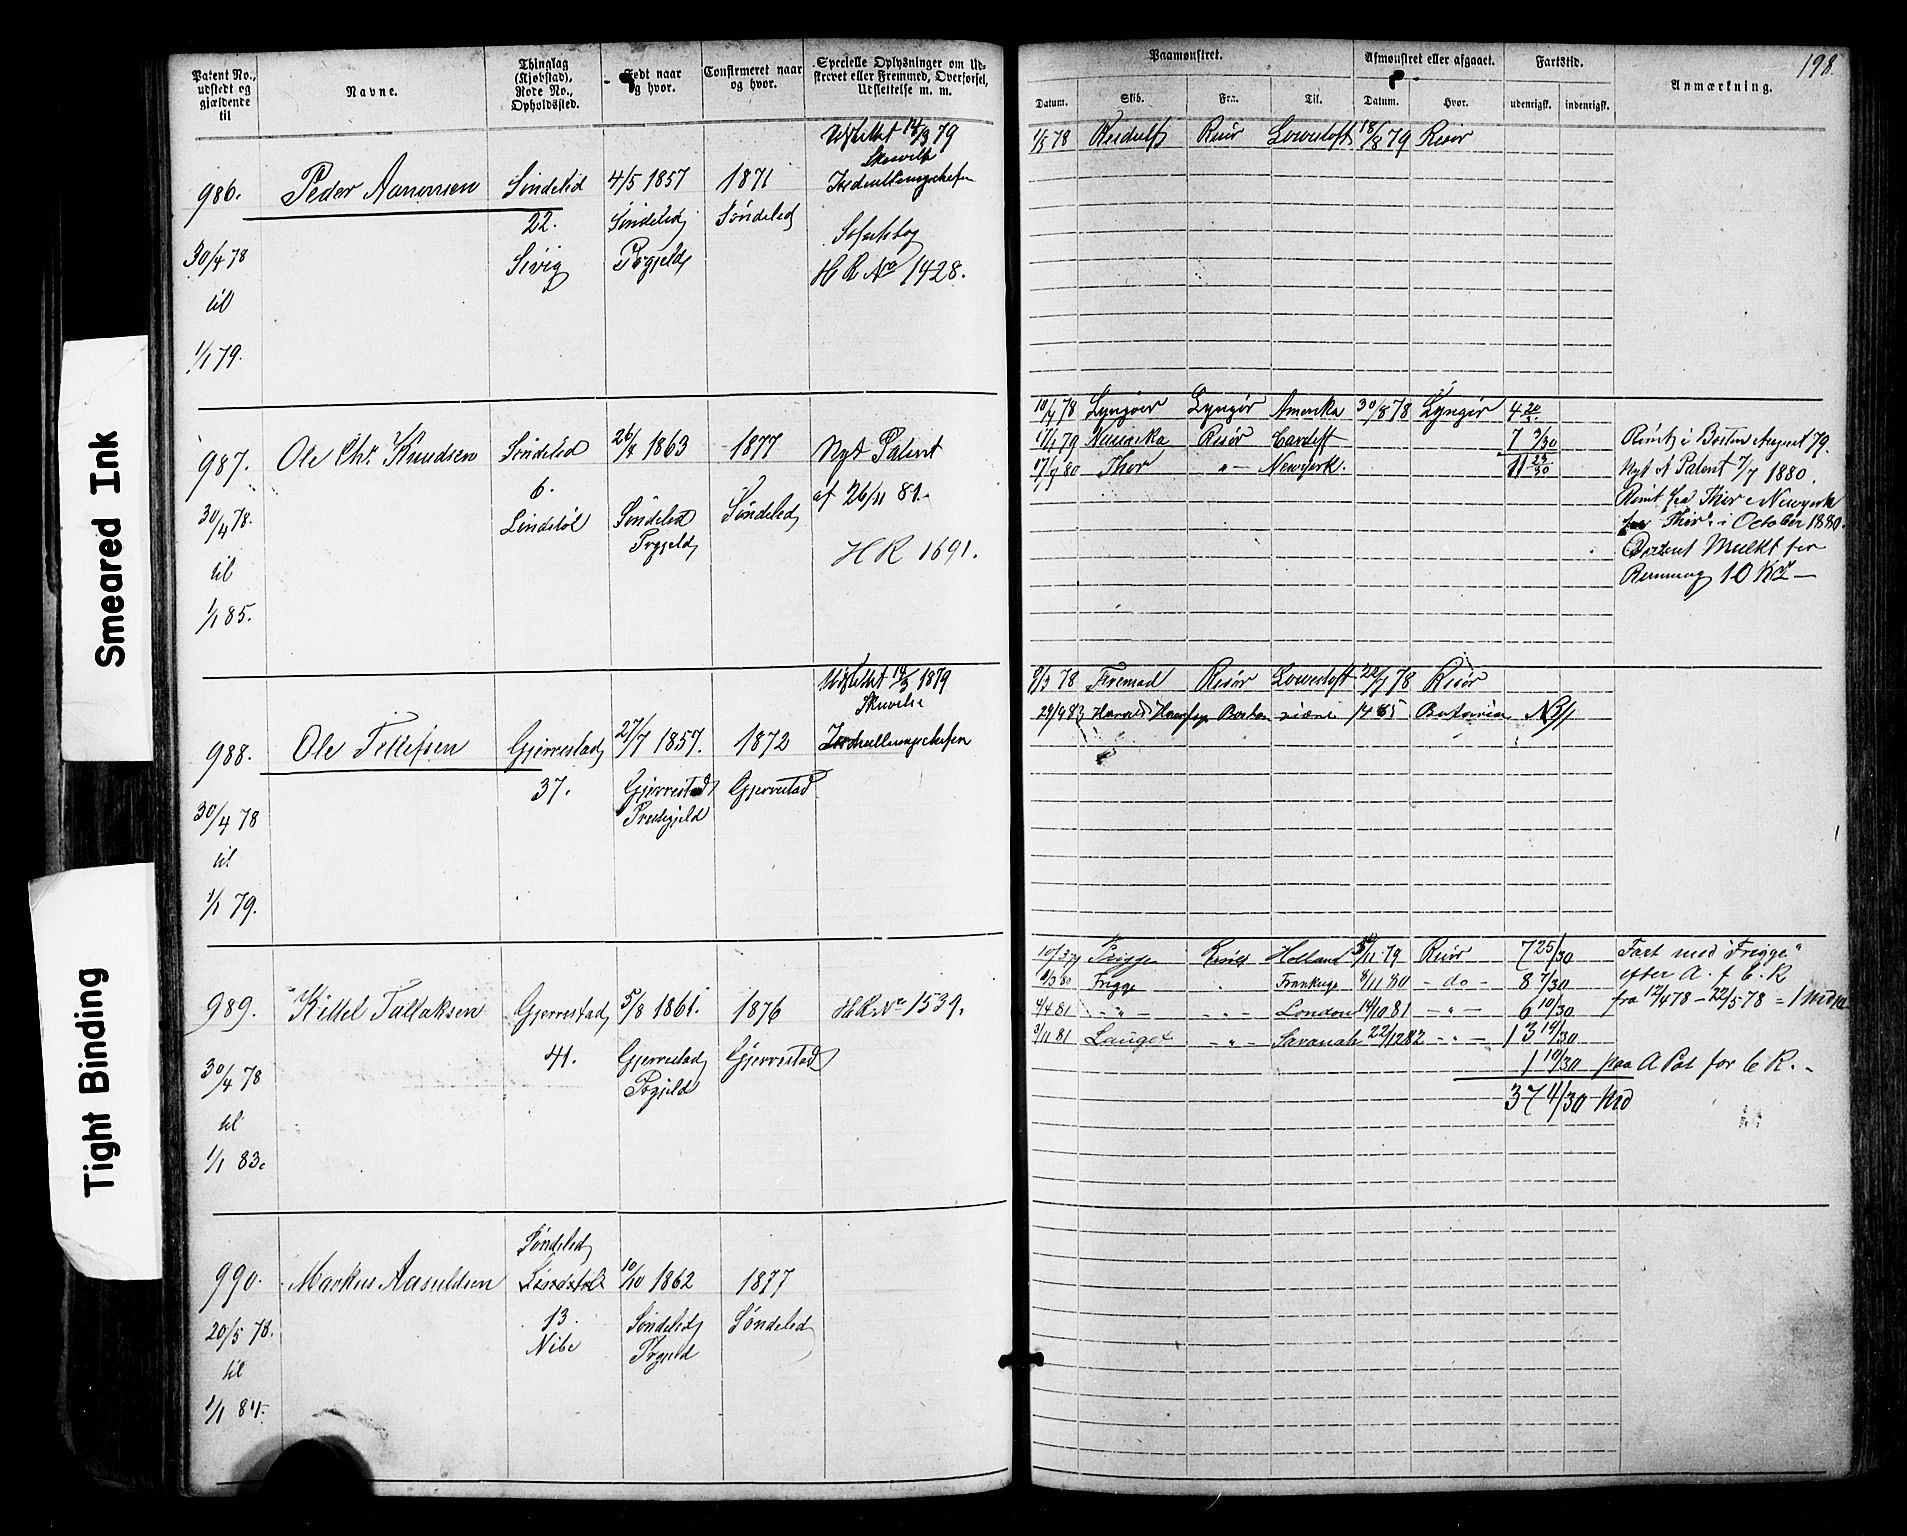 Smeared Ink
Tight Binding
198.
Patent No., udstedt og gjældende til
Navne.
Thinglag (Kjøbstad), Rode No., Opholdssted.
Født naar og hvor.
Confirmeret naar og hvor.
Specielle Oplysninger om Udskrevet eller Fremmed, Overførsel, Udslettelse m. m.
Paamønstret.
Datum.
Skib.
Fra.
Til.
Afmønstret eller afgaaet.
Datum.
Hvor.
Fartstid.
udenrigsk.
indenrigsk.
Anmærkning.
986.
30/4 78
til
1/1 79.
Peder Aanonsen
Søndeled
22.
Sivig
4/5 1857
Søndeled
Prgjeld
1871
Søndeled
Udslettet 14/3 79
HR No 1428.
1/5 78 Risør Lowestoft 18/8 79 Risør
987.
30/4 78.
til
1/1 85.
Ole Chr. Knudsen
Søndeled
6.
Lindstøl
26/8 1863
Søndeled
Prgjeld
1877
Søndeled
Nyt Patent
af 26/11 81.
HR 1691.
10/4 78 Lyngøer Lyngør Amerika 30/8 78 Lyngør 4 20/30
1/1 79 Risør Cardiff 7 3/30
17/7 80 Thor - " - Newyork. 11 23/30
Rømt i Boston August 79.
Nyt A Patent 7/7 1880.
Rømt fra Thor i Newyork
"Thor" i October 1880.
Betalt Mulkt for
Rømning 10 Kr —
988.
30/4 78
til
1/1 79.
Ole Tellefsen
Gjerrestad
37.
27/7 1857.
Gjerrestad
Prestegjeld
1872
Gjerrestad
Udslettet 14/3 1879
Skrivelse
Indrulleringschefen
9/3 78 Fremad Risør Lowestoft 22/7 78 Risør
29/9 83 Harald Haarfagr Boston 1/4 85 Batavia
989.
30/4 78
til
1/1 83.
Kittel Tallaksen
Gjerrestad
41.
5/8 1861.
Gjerrestad
Prgjeld
1876
Gjerrestad
HR No 1539.
10/3 79 Frigge Risør Holland 5/11 79 Risør 7 25/30
9/3 80 Frigge " 8/11 80 - do - 8 7/30
4/4 81 - " - - " - London 14/10 81 - " - 6 10/30
3/11 81 Lauget - " - Savanah 22/12 82 - " - 13 19/30
1 10/30 paa A Pat for C R. -
37 4/30 Md
Fart med "Frigge"
efter A. f C. R
fra 12/4 78 - 22/5 78 =
990.
20/5 78.
til
1/1 84.
Markus Aasuldsen
Søndeled
Lindstøl
13.
Nibe
10/10 1862
Søndeled
Prgjeld
1877
Søndeled